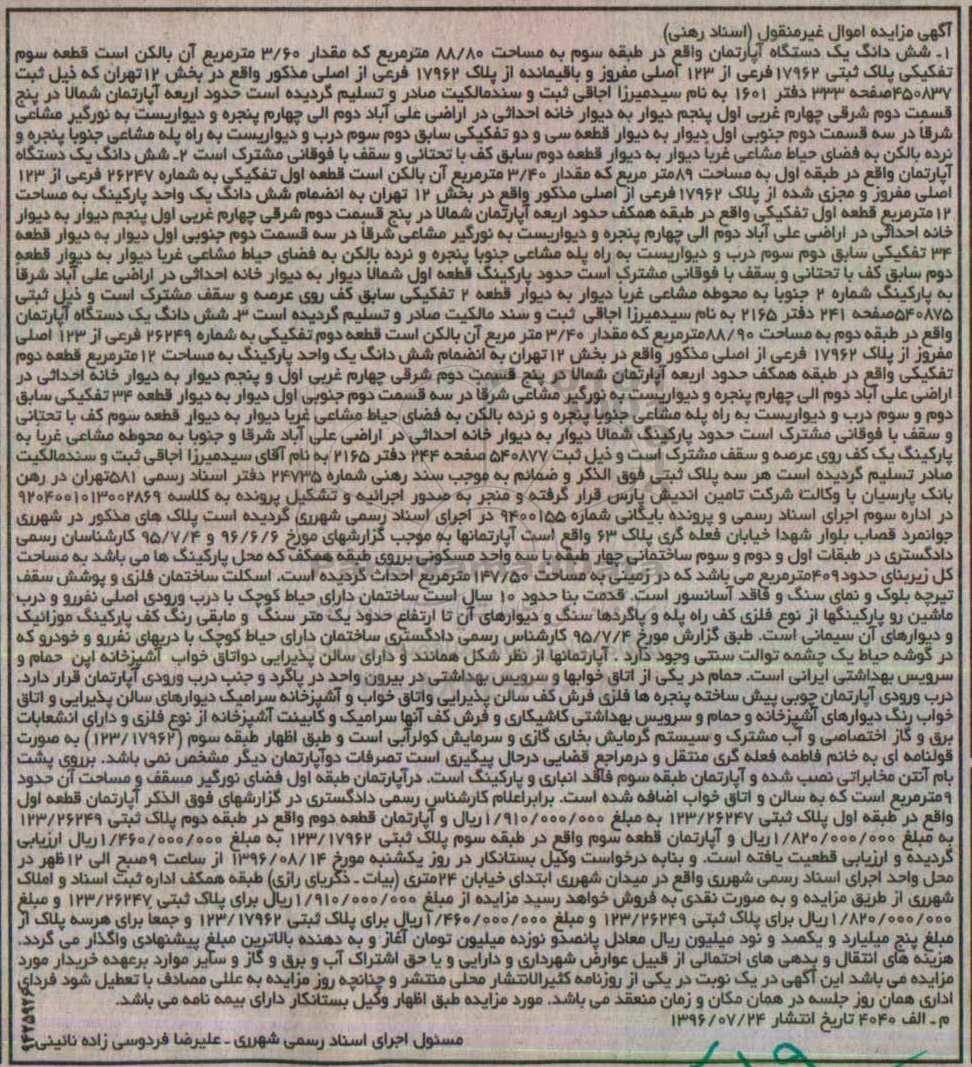 آگهی مزایده اموال غیرمنقول (اسناد رهنی)
۱- شش دانگ یک دستگاه آپارتمان واقع در طبقه سوم به مساحت ۸۸/۸۰ مترمربع که مقدار ۳/۶۰ مترمربع آن بالکن است قطعه سوم
تفکیکی پلاک ثبتی ۱۷۹۶۲فرعی از ۱۲۳ اصلی مفروز و باقیمانده از پلاک ۱۷۹۶۲ فرعی از اصلی مذکور واقع در بخش ۱۲تهران که ذیل ثبت
۴۵۰۸۳۷صفحه ۳۳۳ دفتر ۱۶۰۱ به نام سیدمیرزا اجاقی ثبت و سندمالکیت صادر و تسلیم گردیده است حدود اربعه آپارتمان شمالا در پنج
قسمت دوم شرقی چهارم غربی اول پنجم دیوار به دیوار خانه احداثی در اراضی علی آباد دوم الی چهارم پنجره و دیواریست به نورگیر مشاعی
شرقا در سه قسمت دوم جنوبی اول دیوار به دیوار قطعه سی و دو تفکیکی سابق دوم سوم درب و دیواریست به راه پله مشاعی جنوبا پنجره و
نرده بالکن به فضای حیاط مشاعی غربا دیوار به دیوار قطعه دوم سابق کف با تحتانی و سقف با فوقانی مشترک است ۲- شش دانگ یک دستگاه
آپارتمان واقع در طبقه اول به مساحت ۸۹متر مربع که مقدار ۳/۴۰ مترمربع آن بالکن است قطعه اول تفکیکی به شماره ۲۶۲۴۷ فرعی از ۱۲۳
اصلی مفروز و مجزی شده از پلاک ۱۷۹۶۲فرعی از اصلی مذکور واقع در بخش ۱۲ تهران به انضمام شش دانگ یک واحد پارکینگ به مساحت
۱۲مترمربع قطعه اول تفکیکی واقع در طبقه همکف حدود اربعه آپارتمان شمالا در پنج قسمت دوم شرقی چهارم غربی اول پنجم دیوار به دیوار
خانه احداثی در اراضی علی آباد دوم الی چهارم پنجره و دیواریست به نورگیر مشاعی شرقا در سه قسمت دوم جنوبی اول دیوار به دیوار قطعه
۳۴ تفکیکی سابق دوم سوم درب و دیواریست به راه پله مشاعی جنوبا پنجره و نرده بالکن به فضای حیاط مشاعی غربا دیوار به دیوار قطعه
دوم سابق کف با تحتانی و سقف با فوقانی مشترک است حدود پارکینگ قطعه اول شمالا دیوار به دیوار خانه احداثی در اراضی علی آباد شرقا
به پارکینگ شماره ۲ جنوبا به محوطه مشاعی غربا دیوار به دیوار قطعه ۲ تفکیکی سابق کف روی عرصه و سقف مشترک است و ذیل ثبتی
۵۴۰۸۷۵صفحه ۲۴۱ دفتر ۲۱۶۵ به نام سیدمیرزا اجاقی ثبت و سند مالکیت صادر و تسلیم گردیده است ۳- شش دانگ یک دستگاه آپارتمان
واقع در طبقه دوم به مساحت ۸۸/۹۰مترمربع که مقدار ۳/۴۰ متر مربع آن بالکن است قطعه دوم تفکیکی به شماره ۲۶۲۴۹ فرعی از ۱۲۳ اصلی
مفروز از پلاک ۱۷۹۶۲ فرعی از اصلی مذکور واقع در بخش ۱۲تهران به انضمام شش دانگ یک واحد پارکینگ به مساحت ۱۲مترمربع قطعه دوم
تفکیکی واقع در طبقه همکف حدود اربعه آپارتمان شمالا در پنج قسمت دوم شرقی چهارم غربی اول و پنجم دیوار به دیوار خانه احداثی در
اراضی علی آباد دوم الی چهارم پنجره و دیواریست به نورگیر مشاعی شرقا در سه قسمت دوم جنوبی اول دیوار به دیوار قطعه ۳۴ تفکیکی سابق
دوم و سوم درب و دیواریست به راه پله مشاعی جنوبا پنجره و نرده بالکن به فضای حیاط مشاعی غربا دیوار به دیوار قطعه سوم کف با تحتانی
و سقف با فوقانی مشترک است حدود پارکینگ شمالا دیوار به دیوار خانه احداثی در اراضی علی آباد شرقا و جنوبا به محوطه مشاعی غربا به
پارکینگ یک کف روی عرصه و سقف مشترک است و ذیل ثبت ۵۴۰۸۷۷ صفحه ۲۴۴ دفتر ۲۱۶۵ به نام آقای سیدمیرزا اجاقی ثبت و سندمالکیت
صادر تسلیم گردیده است هر سه پلاک ثبتی فوق الذکر و ضمائم به موجب سند رهنی شماره ۲۴۷۳۵ دفتر اسناد رسمی ۵۸۱تهران در رهن
بانک پارسیان با وکالت شرکت تامین اندیش پارس قرار گرفته و منجر به صدور اجرائیه و تشکیل پرونده به کلاسه ۹۲۰۴۰۰۱۰۱۳۰۰۲۸۶۹
در اداره سوم اجرای اسناد رسمی و پرونده بایگانی شماره ۹۴۰۰۱۵۵ در اجرای اسناد رسمی شهرری گردیده است پلاک های مذکور در شهرری
جوانمرد قصاب بلوار شهدا خیابان فعله گری پلاک ۶۳ واقع است آپارتمانها به موجب گزارشهای مورخ ۹۶/۶/۶ و ۹۵/۷/۴ کارشناسان رسمی
دادگستری در طبقات اول و دوم و سوم ساختمانی چهار طبقه با سه واحد مسکونی برروی طبقه همکف که محل پارکینگ ها می باشد به مساحت
کل زیربنای حدود۴۰۹مترمربع می باشد که در زمینی به مساحت ۱۴۷/۵۰ مترمربع احداث گردیده است. اسکلت ساختمان فلزی و پوشش سقف
تیرچه بلوک و نمای سنگ و فاقد آسانسور است. قدمت بنا حدود ۱۰ سال است ساختمان دارای حیاط کوچک با درب ورودی اصلی نفررو و درب
ماشین رو پارکینگها از نوع فلزی کف راه پله و پاگردها سنگ و دیوارهای آن تا ارتفاع حدود یک متر سنگ و مابقی رنگ کف پارکینگ موزائیک
و دیوارهای آن سیمانی است. طبق گزارش مورخ ۹۵/۷/۴ کارشناس رسمی دادگستری ساختمان دارای حیاط کوچک با دربهای نفررو و خودرو که
در گوشه حیاط یک چشمه توالت سنتی وجود دارد . آپارتمانها از نظر شکل همانند و دارای سالن پذیرایی دواتاق خواب آشپزخانه اپن حمام و
سرویس بهداشتی ایرانی است. حمام در یکی از اتاق خوابها و سرویس بهداشتی در بیرون واحد در پاگرد و جنب درب ورودی آپارتمان قرار دارد.
درب ورودی آپارتمان چوبی پیش ساخته پنجره ها فلزی فرش کف سالن پذیرایی واتاق خواب و آشپزخانه سرامیک دیوارهای سالن پذیرایی و اتاق
خواب رنگ دیوارهای آشپزخانه و حمام و سرویس بهداشتی کاشیکاری و فرش کف آنها سرامیک و کابینت آشپزخانه از نوع فلزی و دارای انشعابات
برق و گاز اختصاصی و آب مشترک و سیستم گرمایش بخاری گازی و سرمایش کولرآبی است و طبق اظهار طبقه سوم (۱۲۳/۱۷۹۶۲) به صورت
قولنامه ای به خانم فاطمه فعله گری منتقل و درمراجع قضایی درحال پیگیری است تصرفات دوآپارتمان دیگر مشخص نمی باشد. برروی پشت
بام آنتن مخابراتی نصب شده و آپارتمان طبقه سوم فاقد انباری و پارکینگ است. درآپارتمان طبقه اول فضای نورگیر مسقف و مساحت آن حدود
۹مترمربع است که به سالن و اتاق خواب اضافه شده است. برابراعلام کارشناس رسمی دادگستری در گزارشهای فوق الذکر آپارتمان قطعه اول
واقع در طبقه اول پلاک ثبتی ۱۲۳/۲۶۲۴۷ به مبلغ ۱/۹۱۰/۰۰۰/۰۰۰ریال و آپارتمان قطعه دوم واقع در طبقه دوم پلاک ثبتی ۱۲۳/۲۶۲۴۹
به مبلغ ۱/۸۲۰/۰۰۰/۰۰۰ریال و آپارتمان قطعه سوم واقع در طبقه سوم پلاک ثبتی ۱۲۳/۱۷۹۶۲ به مبلغ ۱/۴۶۰/۰۰۰/۰۰۰ریال ارزیابی
گردیده و ارزیابی قطعیت یافته است. و بنابه درخواست وکیل بستانکار در روز یکشنبه مورخ ۱۳۹۶/۰۸/۱۴ از ساعت ۹صبح الی ۱۲ظهر در
محل واحد اجرای اسناد رسمی شهرری واقع در میدان شهرری ابتدای خیابان ۲۴متری (بیات - ذکریای رازی) طبقه همکف اداره ثبت اسناد و املاک
شهرری از طریق مزایده و به صورت نقدی به فروش خواهد رسید مزایده از مبلغ ۱/۹۱۰/۰۰۰/۰۰۰ریال برای پلاک ثبتی ۱۲۳/۲۶۲۴۷ و مبلغ
۱/۸۲۰/۰۰۰/۰۰۰ریال برای پلاک ثبتی ۱۲۳/۲۶۲۴۹ و مبلغ ۱/۴۶۰/۰۰۰/۰۰۰ریال برای پلاک ثبتی ۱۲۳/۱۷۹۶۲ و جمعا برای هرسه پلاک از
مبلغ پنج میلیارد و یکصد و نود میلیون ریال معادل پانصدو نوزده میلیون تومان آغاز و به دهنده بالاترین مبلغ پیشنهادی واگذار می گردد.
هزینه های انتقال و بدهی های احتمالی از قبیل عوارض شهرداری و دارایی و یا حق اشتراک آب و برق و گاز و سایر موارد برعهده خریدار مورد
مزایده می باشد این آگهی در یک نوبت در یکی از روزنامه کثیرالانتشار محلی منتشر و چنانچه روز مزایده به عللی مصادف با تعطیل شود فردای
اداری همان روز جلسه در همان مکان و زمان منعقد می باشد. مورد مزایده طبق اظهار وکیل بستانکار دارای بیمه نامه می باشد.
م - الف ۴۰۴۰ تاریخ انتشار ۱۳۹۶/۰۷/۲۴
مسئول اجرای اسناد رسمی شهرری - علیرضا فردوسی زاده نائینی